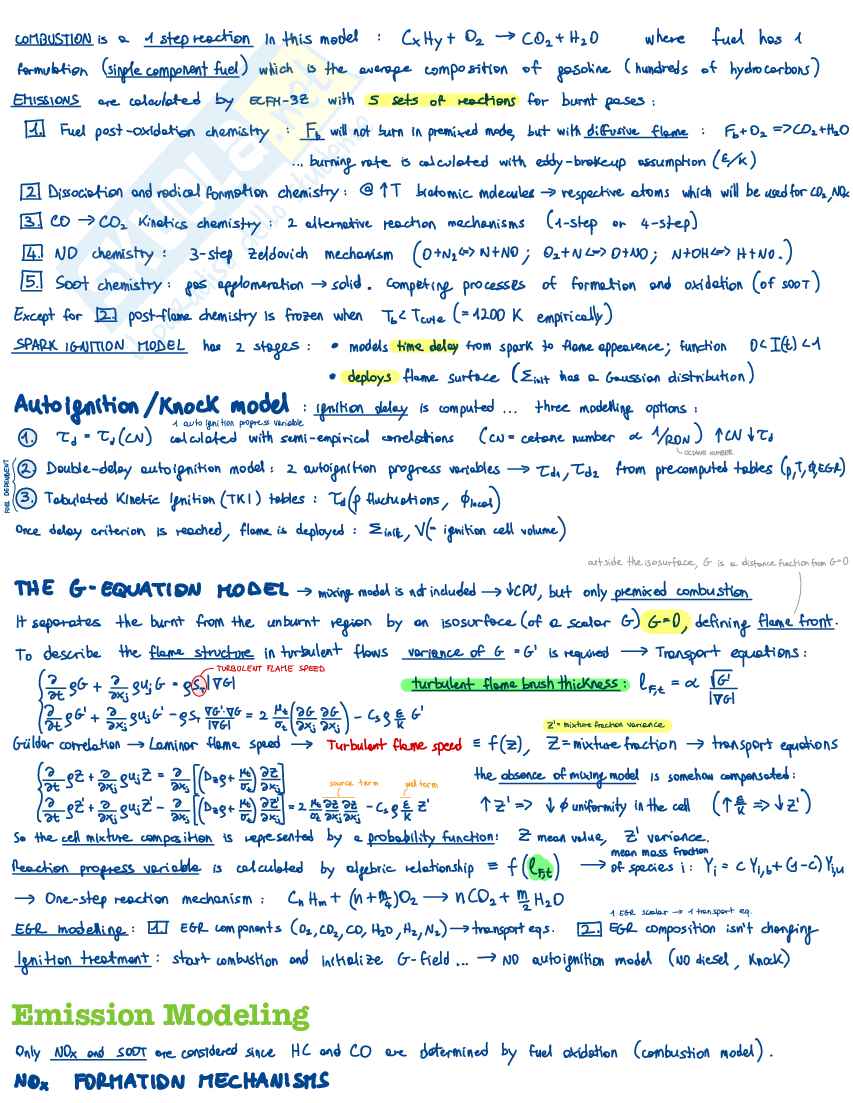 COMBUSTION is a 1 step reaction in this model : CxHy + O2 → CO2 + H2O where fuel has 1
formulation (single component fuel) which is the average composition of gasoline (hundreds of hydrocarbons)
EMISSIONS are calculated by ECFM-3Z with 5 sets of reactions for burnt gases :
1. Fuel post-oxidation chemistry : Fb will not burn in premixed mode, but with diffusive flame : Fb + O2 => CO2 + H2O
... burning rate is calculated with eddy-breakup assumption (ε/K)
2. Dissociation and radical formation chemistry : @ ↑T biatomic molecules → respective atoms which will be used for CO2, NOx
3. CO → CO2 Kinetics chemistry : 2 alternative reaction mechanisms (1-step or 4-step)
4. NO chemistry : 3-step Zeldovich mechanism (O+N2 <=> N+NO ; O2+N <=> O+NO ; N+OH <=> H+NO.)
5. Soot chemistry : gas agglomeration → solid. Competing processes of formation and oxidation (of SOOT)
Except for 2. post-flame chemistry is frozen when Tb < Tcute (= 1200 K empirically)
SPARK IGNITION MODEL has 2 stages : • models time delay from spark to flame appearence; function 0 < I(t) < 1
• deploys flame surface (Σinit has a Gaussian distribution)
Autoignition/Knock model : ignition delay is computed ... three modelling options :
1 auto ignition progress variable
1. τd = τd(CN) calculated with semi-empirical correlations (CN = cetane number ∝ 1/RON) ↑CN ↓τd
OCTANE NUMBER
FUEL DEPENDENT
2. Double-delay autoignition model : 2 autoignition progress variables → τd1, τd2 from precomputed tables (p,T,Φ,EGR)
3. Tabulated Kinetic Ignition (TKI) tables : τd(p fluctuations, ϕlocal)
Once delay criterion is reached, flame is deployed : Σinit, V(= ignition cell volume)
outside the isosurface, G is a distance function from G=0
THE G-EQUATION MODEL → mixing model is not included → ↓CPU, but only premixed combustion
It separates the burnt from the unburnt region by an isosurface (of a scalar G) G=0, defining flame front.
To describe the flame structure in turbulent flows variance of G = G' is required → Transport equations :
TURBULENT FLAME SPEED
∂/∂t ρG + ∂/∂xj ρujG = ρST|∇G| turbulent flame brush thickness : lF,t = α √G'/|∇G|
∂/∂t ρG' + ∂/∂xj ρujG' - ρST ∇G'·∇G/|∇G| = 2 μt/σt (∂G/∂xj ∂G/∂xj) - Cs ρ ε/K G'
Z' = mixture fraction variance
Gülder correlation → Laminar flame speed → Turbulent flame speed ≡ f(Z), Z = mixture fraction → transport equations
∂/∂t ρZ + ∂/∂xj ρujZ = ∂/∂xj [(DZρ + μt/σt) ∂Z/∂xj] the absence of mixing model is somehow compensated :
source term
∂/∂t ρZ' + ∂/∂xj ρujZ' - ∂/∂xj [(DZρ + μt/σt) ∂Z'/∂xj] = 2 μt/σt ∂Z/∂xj ∂Z/∂xj - Cs ρ ε/K Z' ↑Z' => ↓ϕ uniformity in the cell (↑ ε/K => ↓Z')
So the cell mixture composition is represented by a probability function : Z mean value, Z' variance.
mean mass fraction
Reaction progress variable is calculated by algebric relationship ≡ f(lF,t) → of species i : Yi = c Yi,b + (1-c) Yi,u
→ One-step reaction mechanism : CnHm + (n + m/4)O2 → nCO2 + m/2 H2O
1 EGR scalar → 1 transport eq.
EGR modelling : 1. EGR components (O2, CO2, CO, H2O, H2, N2) → transport eqs. 2. EGR composition isn't changing
Ignition treatment : start combustion and initialize G-field ... → NO autoignition model (NO diesel, Knock)
Emission Modeling
Only NOx and SOOT are considered since HC and CO are determined by fuel oxidation (combustion model).
NOx FORMATION MECHANISMS